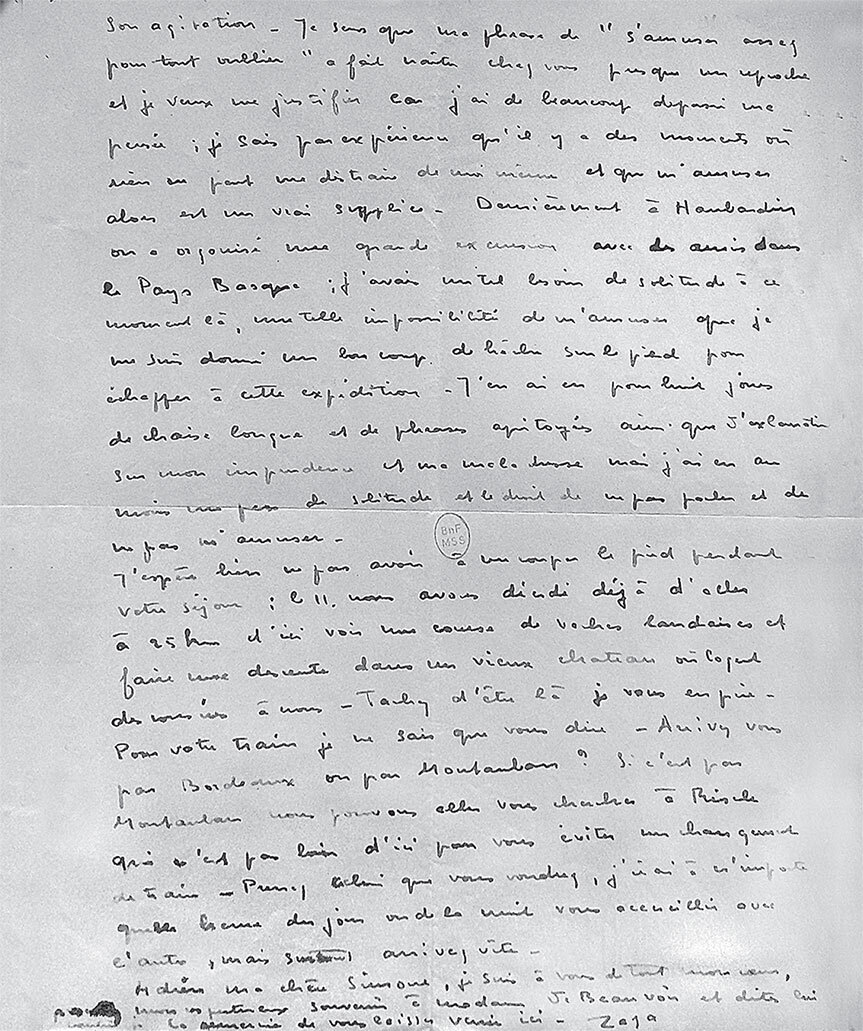 son agitation - Je sens que ma phrase de "s'amuser assez
pour tout oublier" a fait naître chez vous presque un reproche
et je veux me justifier car j'ai de beaucoup dépassé ma
pensée ; je sais par expérience qu'il y a des moments où
rien ne peut me distraire de moi même et que m'amuser
alors est un vrai supplice - Dernièrement à Haubardin
on a organisé une grande excursion avec des amis dans
le Pays Basque ; j'avais un tel besoin de solitude à ce
moment là, une telle impossibilité de m'amuser que je
me suis donné un bon coup de hache sur le pied pour
échapper à cette expédition - J'en ai eu pour huit jours
de chaise longue et de phrases apitoyées ainsi que d'exclamations
sur mon imprudence et ma maladresse mais j'ai eu au
moins un peu de solitude et le droit de ne pas parler et de
ne pas m'amuser -
BnF
MSS
J'espère bien ne pas avoir à me couper le pied pendant
votre séjour ; le 11, nous avons décidé déjà d'aller
à 25 km d'ici voir une course de vaches landaises et
faire une descente dans un vieux château où logent
des cousins à nous - Tachez d'être là je vous en prie -
Pour votre train je ne sais que vous dire - Arrivez vous
par Bordeaux ou par Montauban ? Si c'est par
Montauban nous pouvons aller vous chercher à Riscle
qui n'est pas loin d'ici pour vous éviter un changement
de train - Prenez celui que vous voudrez, j'irai à n'importe
quelle heure du jour ou de la nuit vous accueillir avec
l'auto, mais surtout arrivez vite -
Adieu ma chère Simone, je suis à vous de tout mon cœur,
mon respectueux souvenir à madame de Beauvoir et dites lui
la remercie de vous laisser venir ici - Zaza